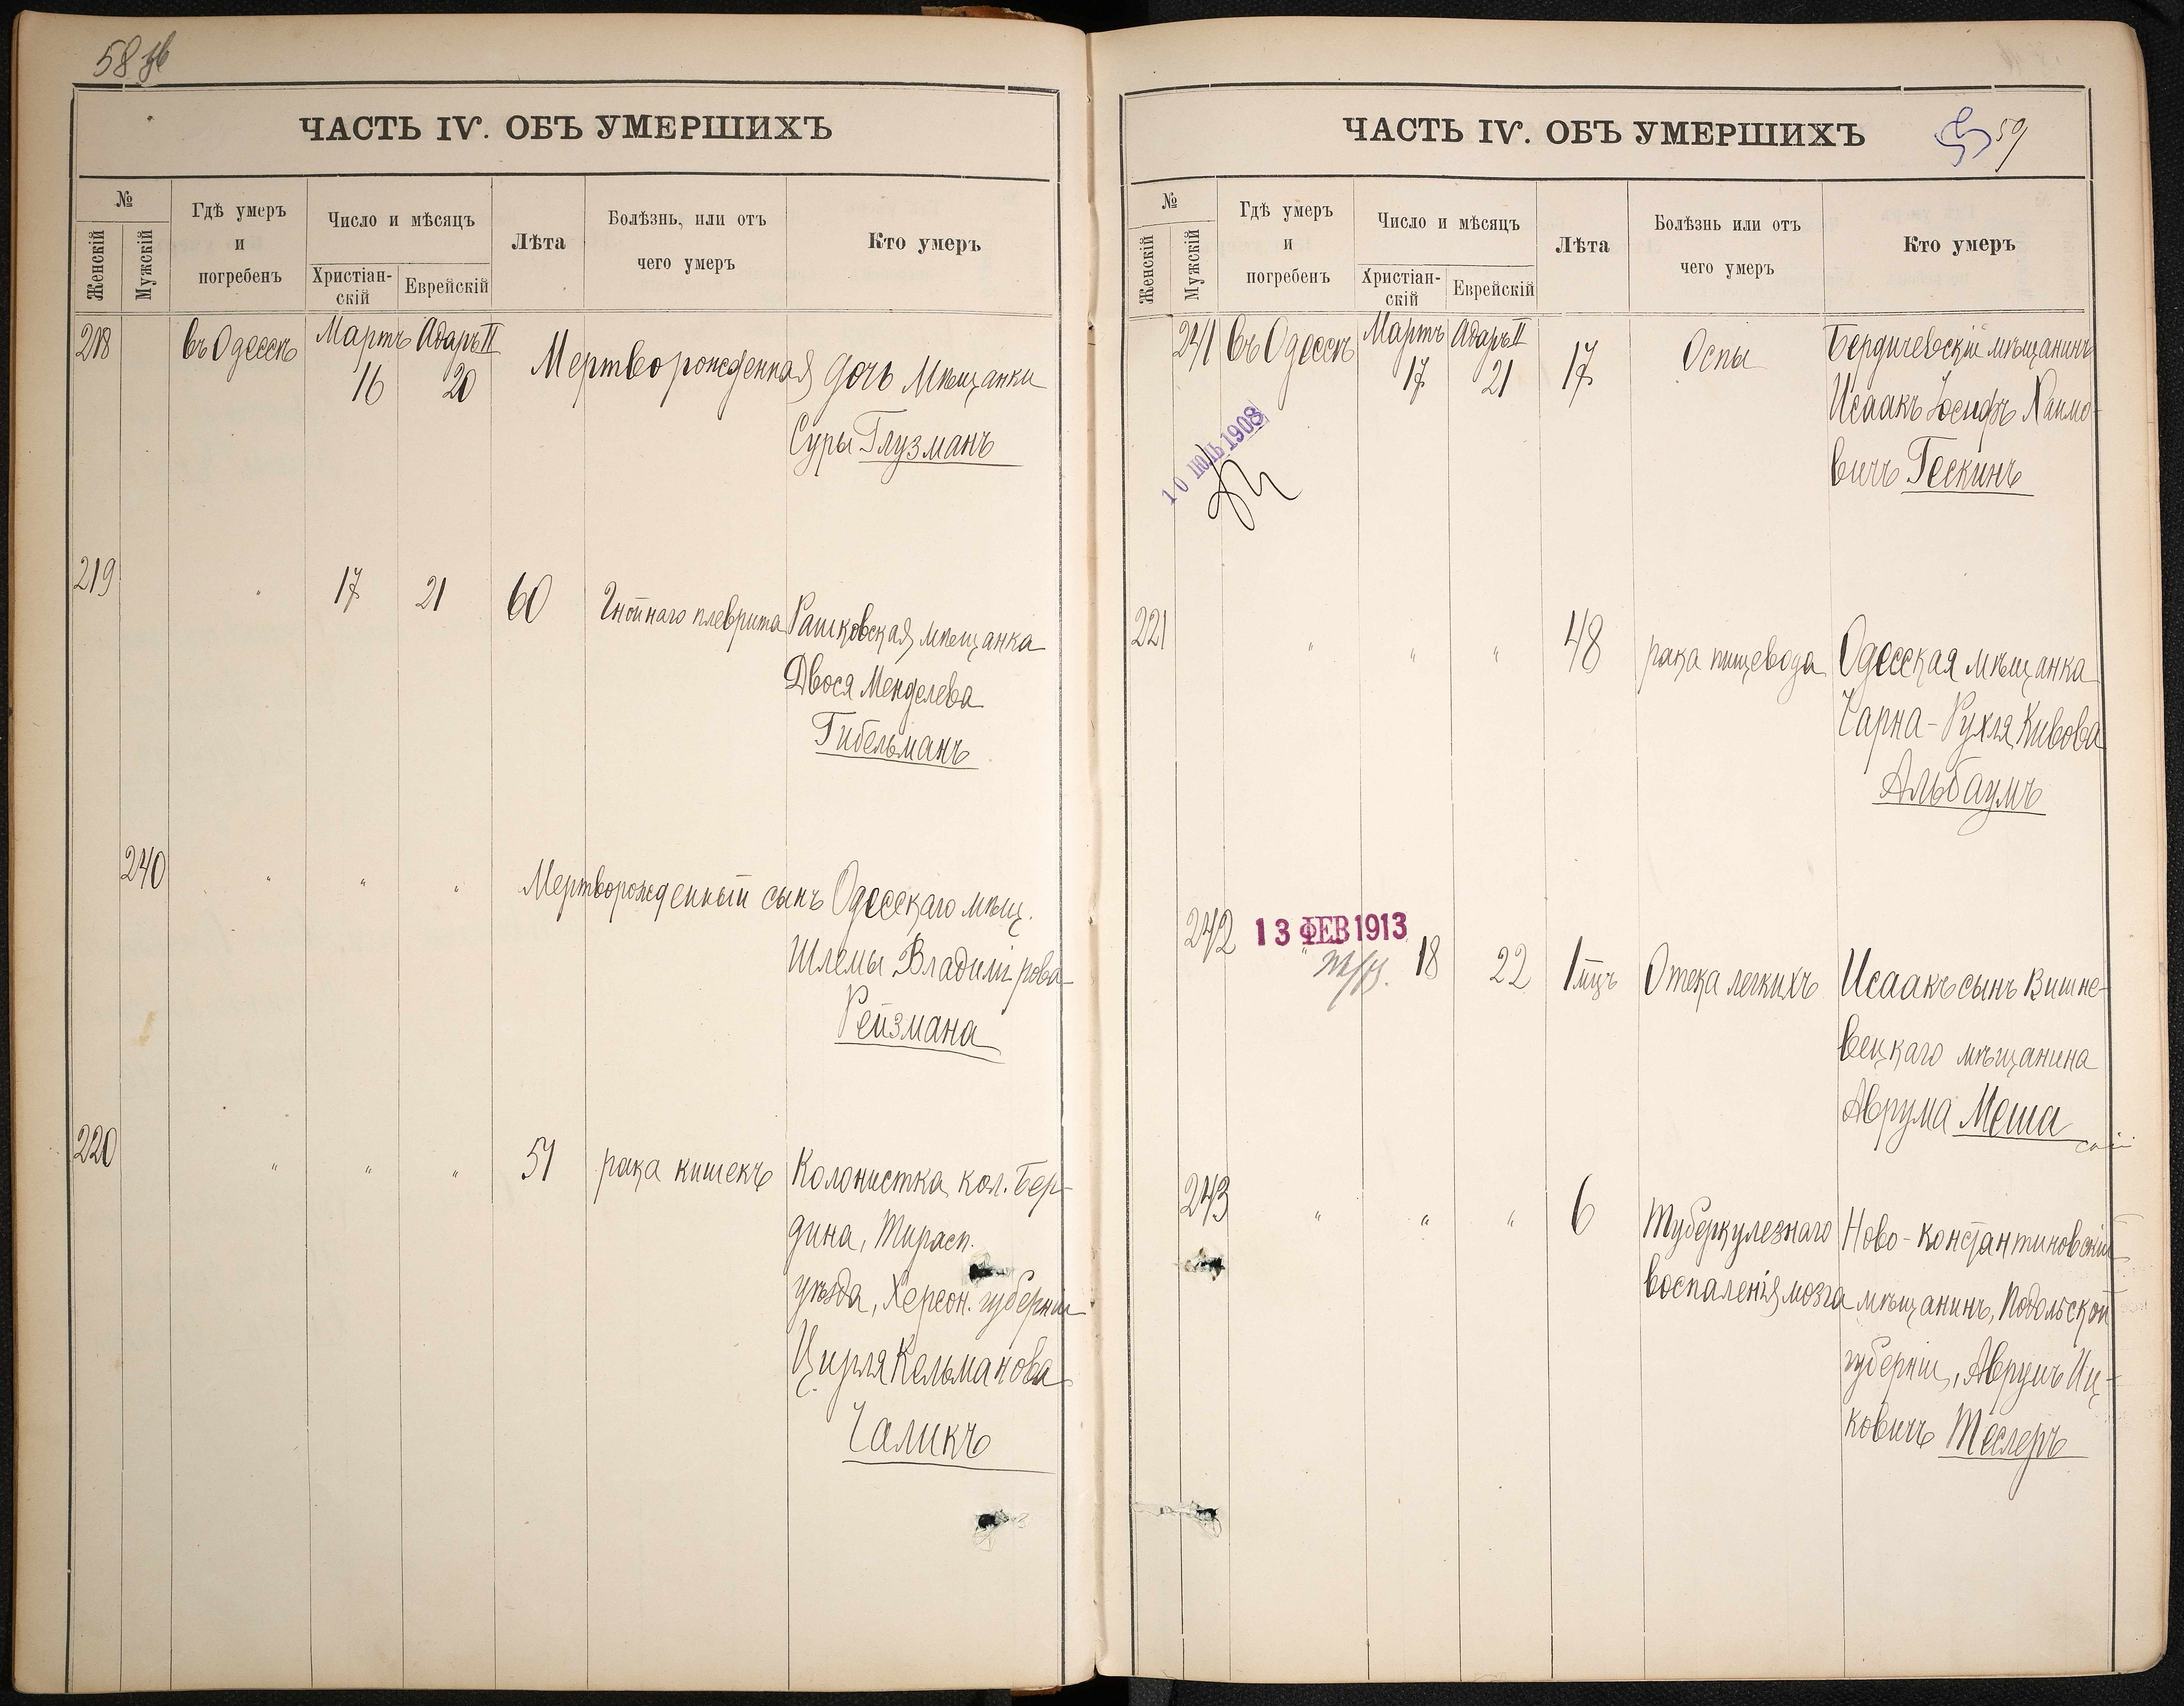 58 об
ЧАСТЬ IV. ОБЪ УМЕРШИХЪ
№
Женскій
Мужскій
Гдѣ умеръ
и
погребенъ
Число и мѣсяцъ
Христіан-
скій
Еврейскій
Лѣта
Болѣзнь, или отъ
чего умеръ
Кто умеръ
218 въ Одессѣ Мартъ Адаръ II
16 20 Мертворожденная дочь Мѣщанки
Суры Глузманъ
219 " 17 21 60 Гнойнаго плеврита Рашковская мѣщанка
Двося Менделева
Гибельманъ
240 " " " Мертворожденный сынъ Одесскаго мѣщ.
Шлемы Владимірова
Рейзмана
220 " " " 51 рака кишекъ Колонистка кол. Бер-
дина, Тирасп.
уѣзда, Херсон. губерніи
Цирля Кельманова
Чаликъ
ЧАСТЬ IV. ОБЪ УМЕРШИХЪ
59
№
Женскій
Мужскій
Гдѣ умеръ
и
погребенъ
Число и мѣсяцъ
Христіан-
скій
Еврейскій
Лѣта
Болѣзнь или отъ
чего умеръ
Кто умеръ
241 въ Одессѣ Мартъ Адаръ II
17 21 17 Оспы Бердичевскій мѣщанинъ
Исаакъ Іосифъ Хаимо-
вичъ Гескинъ
10 ІЮЛЬ 1908
221 " " " 48 рака пищевода Одесская мѣщанка
Чарна-Рухля Кивова
Альбаумъ
242 13 ФЕВ 1913
" 18 22 1 мцъ Отека легкихъ Исаакъ сынъ Вишне-
вецкаго мѣщанина
Аврума Меша
243 " " " 6 Туберкулезнаго Ново-константиновскій
воспаленія мозга мѣщанинъ, Подольской
губерніи, Аврумъ Иц-
ковичъ Теслеръ